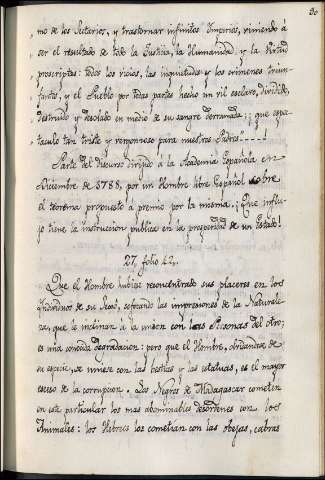 30
mo de los Sectarios, y trastornar infinitos Imperios, viniendo á
ser el resultado de todo la Justicia, la Humanidad, y la Virtud
proscriptas: todos los vicios, las inquietudes y los crimenes triun-
fantes, y el Pueblo por todas partes hecho un vil esclavo, dividido,
destruido y desolado en medio de su sangre derramada; ¡que espec-
taculo tan triste y vergonzoso para nuestros Padres!
Parte del discurso dirijido á la Academia Española en
Diciembre de 1788, por un Hombre libre Español sobre
el teorema propuesto á premio por la misma. ¡Que influ-
jo tiene la instruccion publica en la prosperidad de un Estado!
27. folio 42.
Que el Hombre hubiese reconcentrado sus placeres en los
Individuos de su sexo, sofocando las impresiones de la Naturale-
za, que le inclinan á la union con las Personas del otro;
es una conocida degradacion: pero que el Hombre, olvidandose de
su especie, se uniese con las bestias ó las estatuas, es el mayor
exceso de la corrupcion. Los Negros de Madagascar cometen
en esta particular los mas abominables desordenes con los
Animales: los Hebreos los cometian con las obejas, cabras